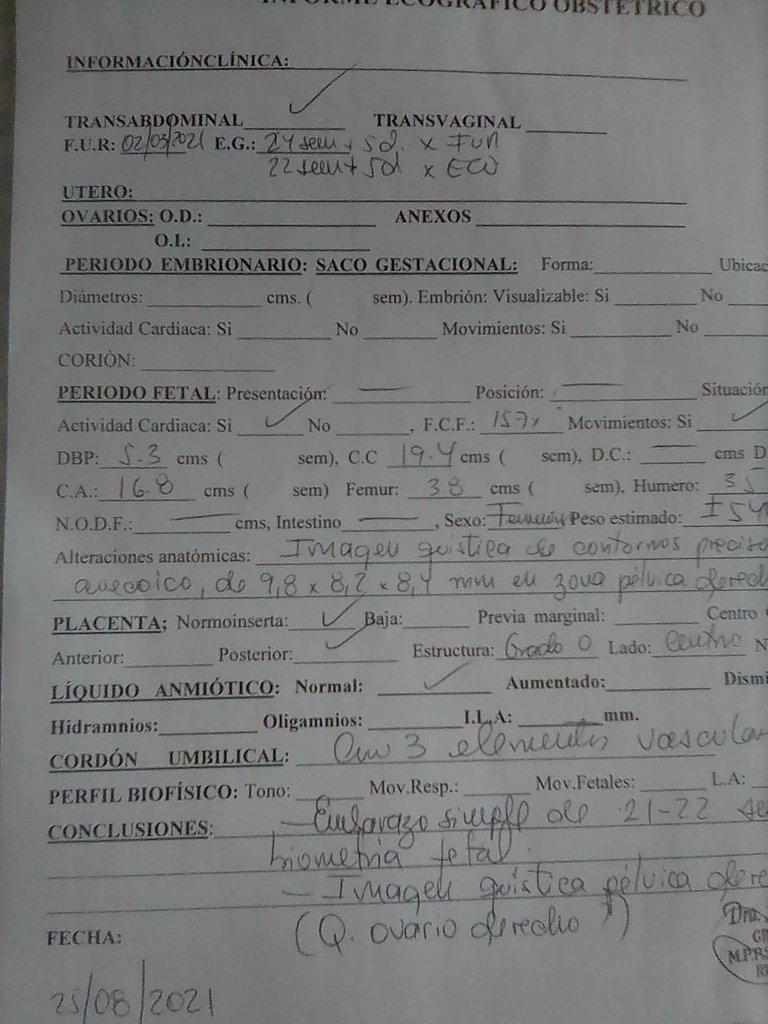 INFORME ECOGRÁFICO OBSTÉTRICO
INFORMACIÓNCLÍNICA:
TRANSABDOMINAL ✓ TRANSVAGINAL
F.U.R: 02/03/2021 E.G.: 24 sem + 5d. x FUR
22 sem + 5d x ECO
UTERO:
OVARIOS: O.D.: ANEXOS
O.I.:
PERIODO EMBRIONARIO: SACO GESTACIONAL: Forma: Ubicac
Diámetros: cms. ( sem). Embrión: Visualizable: Si No
Actividad Cardiaca: Si No Movimientos: Si No
CORIÒN:
PERIODO FETAL: Presentación: — Posición: — Situación
Actividad Cardiaca: Si ✓ No , F.C.F.: 157x Movimientos: Si ✓
DBP: 5.3 cms ( sem), C.C 19.4 cms ( sem), D.C.: — cms D
C.A.: 16.8 cms ( sem) Femur: 3.8 cms ( sem), Humero: 35
N.O.D.F.: — cms, Intestino — , Sexo: Femenino Peso estimado: ± 54
Alteraciones anatómicas: Imagen quistica de contornos preciso
anecoico, de 9,8 x 8,2 x 8,4 mm en zona pélvica derech
PLACENTA; Normoinserta: ✓ Baja: Previa marginal: Centro
Anterior: Posterior: ✓ Estructura: Grado 0 Lado: Centro N
LÍQUIDO ANMIÓTICO: Normal: ✓ Aumentado: Dismi
Hidramnios: Oligamnios: I.L.A: mm.
CORDÓN UMBILICAL: Con 3 elementos vascular
PERFIL BIOFÍSICO: Tono: Mov.Resp.: Mov.Fetales: L.A:
CONCLUSIONES: - Embarazo simple de 21-22 se
biometria fetal.
- Imagen quistica pélvica dere
(Q. ovario derecho ?)
FECHA: Dra.
M.P.P.S
25/08/2021